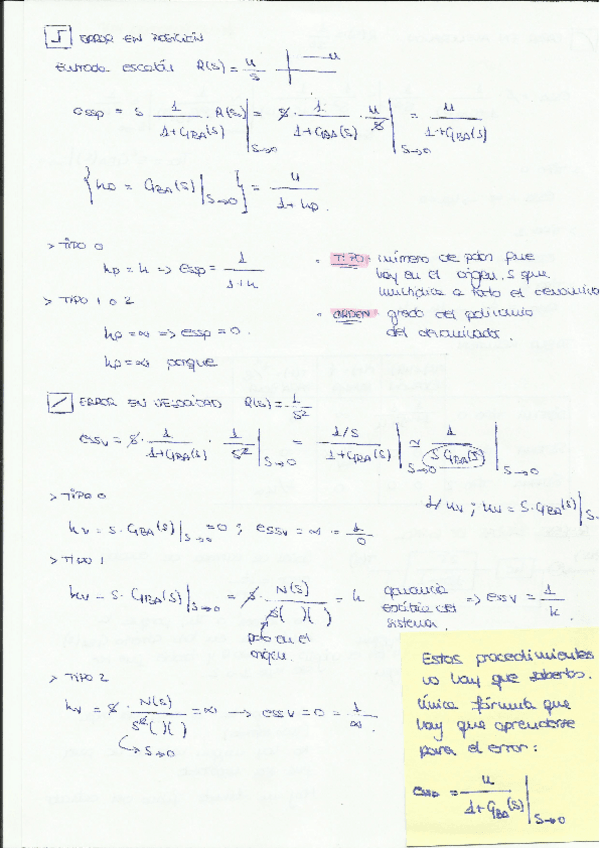 ERROR EN POSICIÓN
Entrada escalón R(s) = u/s
essp = s · 1/(1+GBA(s)) · R(s)|s→0 = s · 1/(1+GBA(s)) · u/s |s→0 = u/(1+GBA(s))
{kp = GBA(s)|s→0} = u/(1+kp)
> TIPO 0
kp = k => essp = 1/(1+k)
> TIPO 1 o 2
kp = ∞ => essp = 0.
kp = ∞ porque
· TIPO: número de polos que
hay en el origen. S que
multiplica a todo el denomina
· ORDEN: grado del polinomio
del denominador.
ERROR EN VELOCIDAD R(s) = 1/s²
essv = s · 1/(1+GBA(s)) · 1/s² |s→0 = (1/s)/(1+GBA(s)) |s→0 ≃ 1/(s GBA(s)) |s→0
1/kv ; kv = s·GBA(s)|s→
> TIPO 0
kv = s·GBA(s)|s→0 = 0 ; essv = ∞ = 1/0
> TIPO 1
kv = s·GBA(s)|s→0 = s · N(s)/(s( )( )) = k ganancia estática del sistema. => essv = 1/k
polo en el
origen.
> TIPO 2
kv = s · N(s)/(s²( )( )) = ∞ → essv = 0 = 1/∞.
↳ s→0
Estos procedimientos
no hay que saberlos.
Única fórmula que
hay que aprenderse
para el error:
essp = u/(1+GBA(s)) |s→0